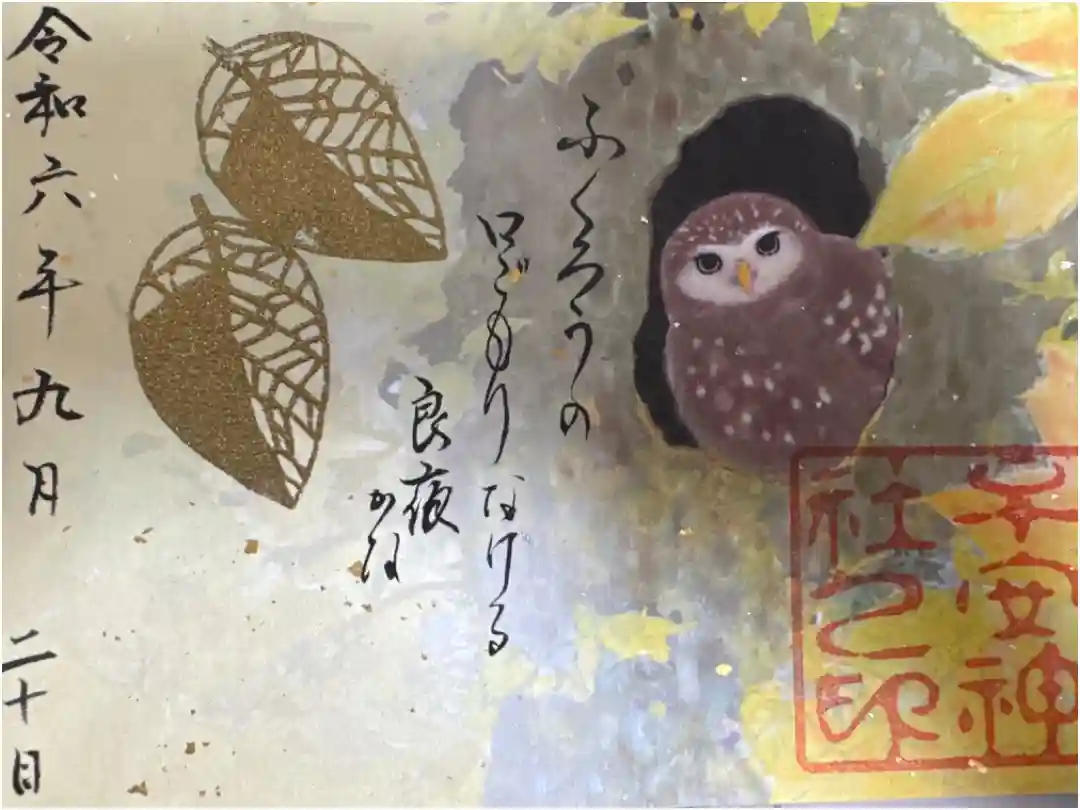 子安神
社之印
ふくろうの
口ごもりなける
良夜
かな
令和六年九月二十日